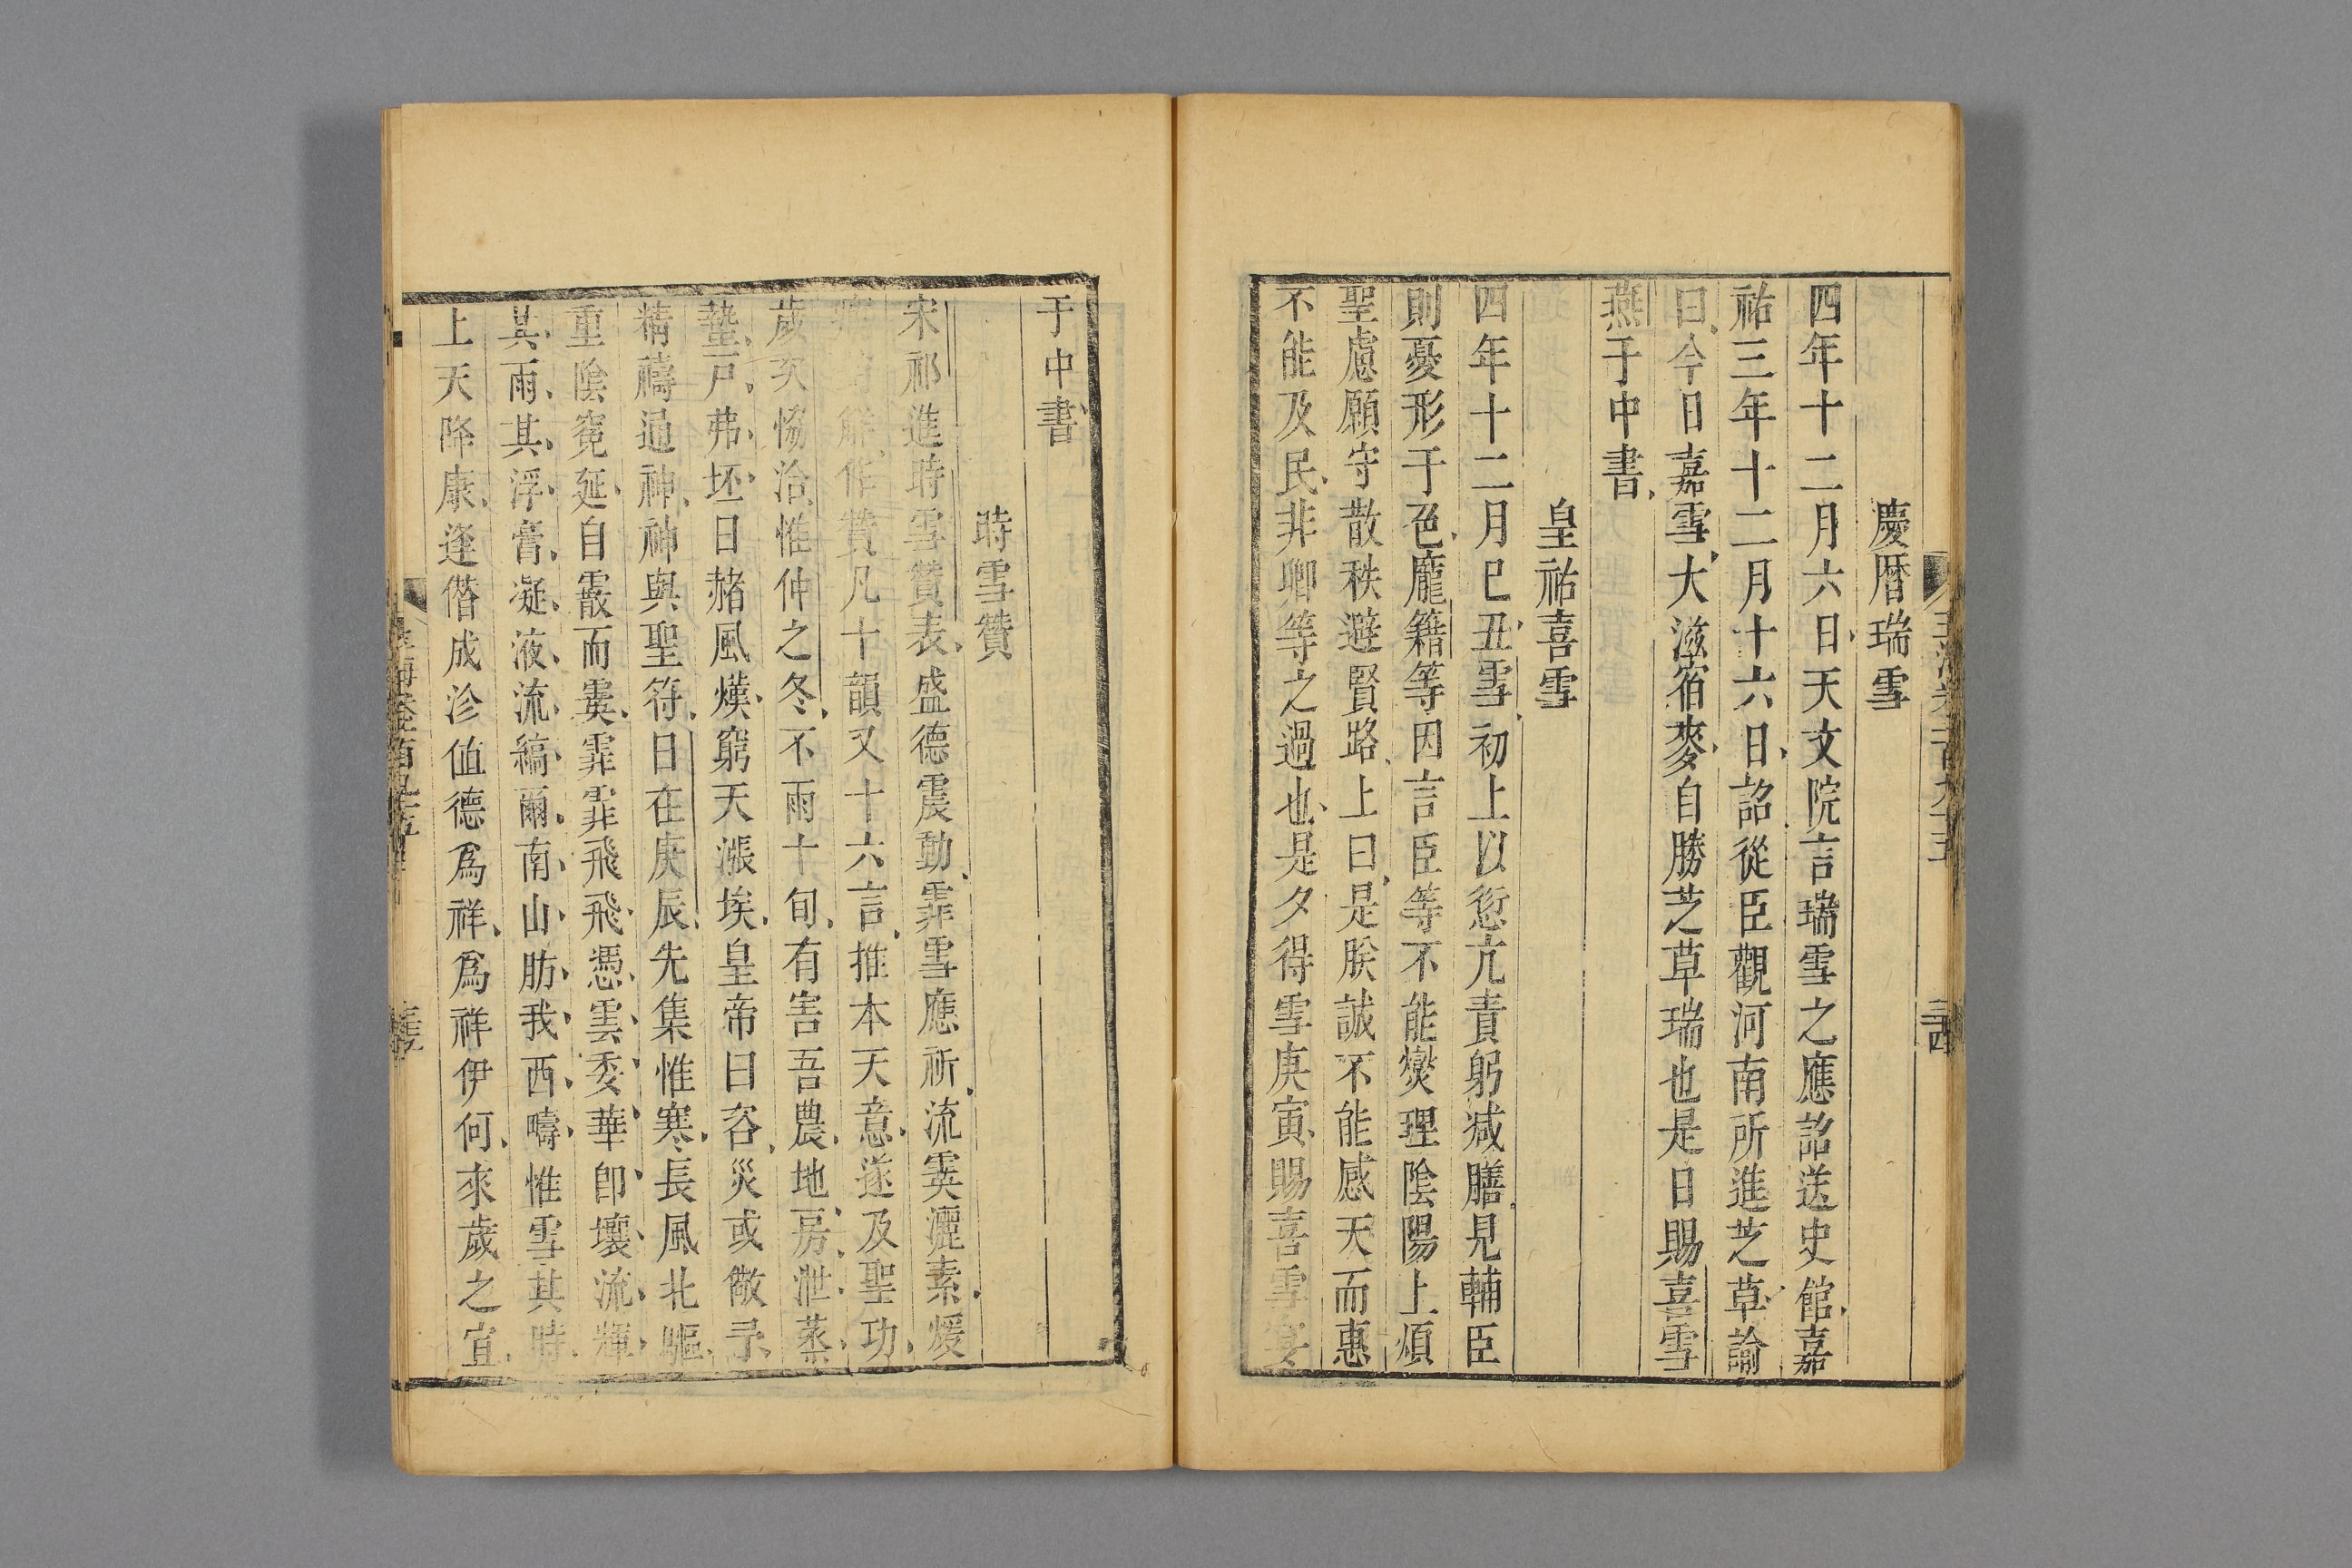 慶曆瑞雪
四年十二月六日天文院言瑞雪之應詔送史館嘉
祐三年十二月十六日詔從臣觀河南所進芝草諭
曰今日嘉雪大滋宿麥自勝芝草瑞也是日賜喜雪
燕于中書
皇祐喜雪
四年十二月巳丑雪初上以愆亢責躬減膳見輔臣
則憂形于色龐籍等因言臣等不能爕理陰陽上煩
聖慮願守散秩避賢路上曰是朕誠不能感天而惠
不能及民非卿等之過也是夕得雪庚寅賜喜雪宴
于中書
時雪贊
宋祁進時雪贊表盛德震動霏雪應祈流霙灑素煖
作贊凡十韻又十六言推本天意遂及聖功
歲次恊洽惟仲之冬不雨十旬有害吾農地房泄蒸
蟄戸弗坯日赭風熯窮天漲埃皇帝曰咨災或儆予
精禱通神神與聖符日在庚辰先集惟寒長風北驅
重陰寬延自霰而霙霏霏飛飛憑雲委華卽壤流輝
其雨其浮膏凝液流縞爾南山肪我西疇惟雪其時
上天降康逢僭成沴值德爲祥爲祥伊何來歲之宜
玉海卷一百九十五
三十四
玉海卷一百九十五
三十五